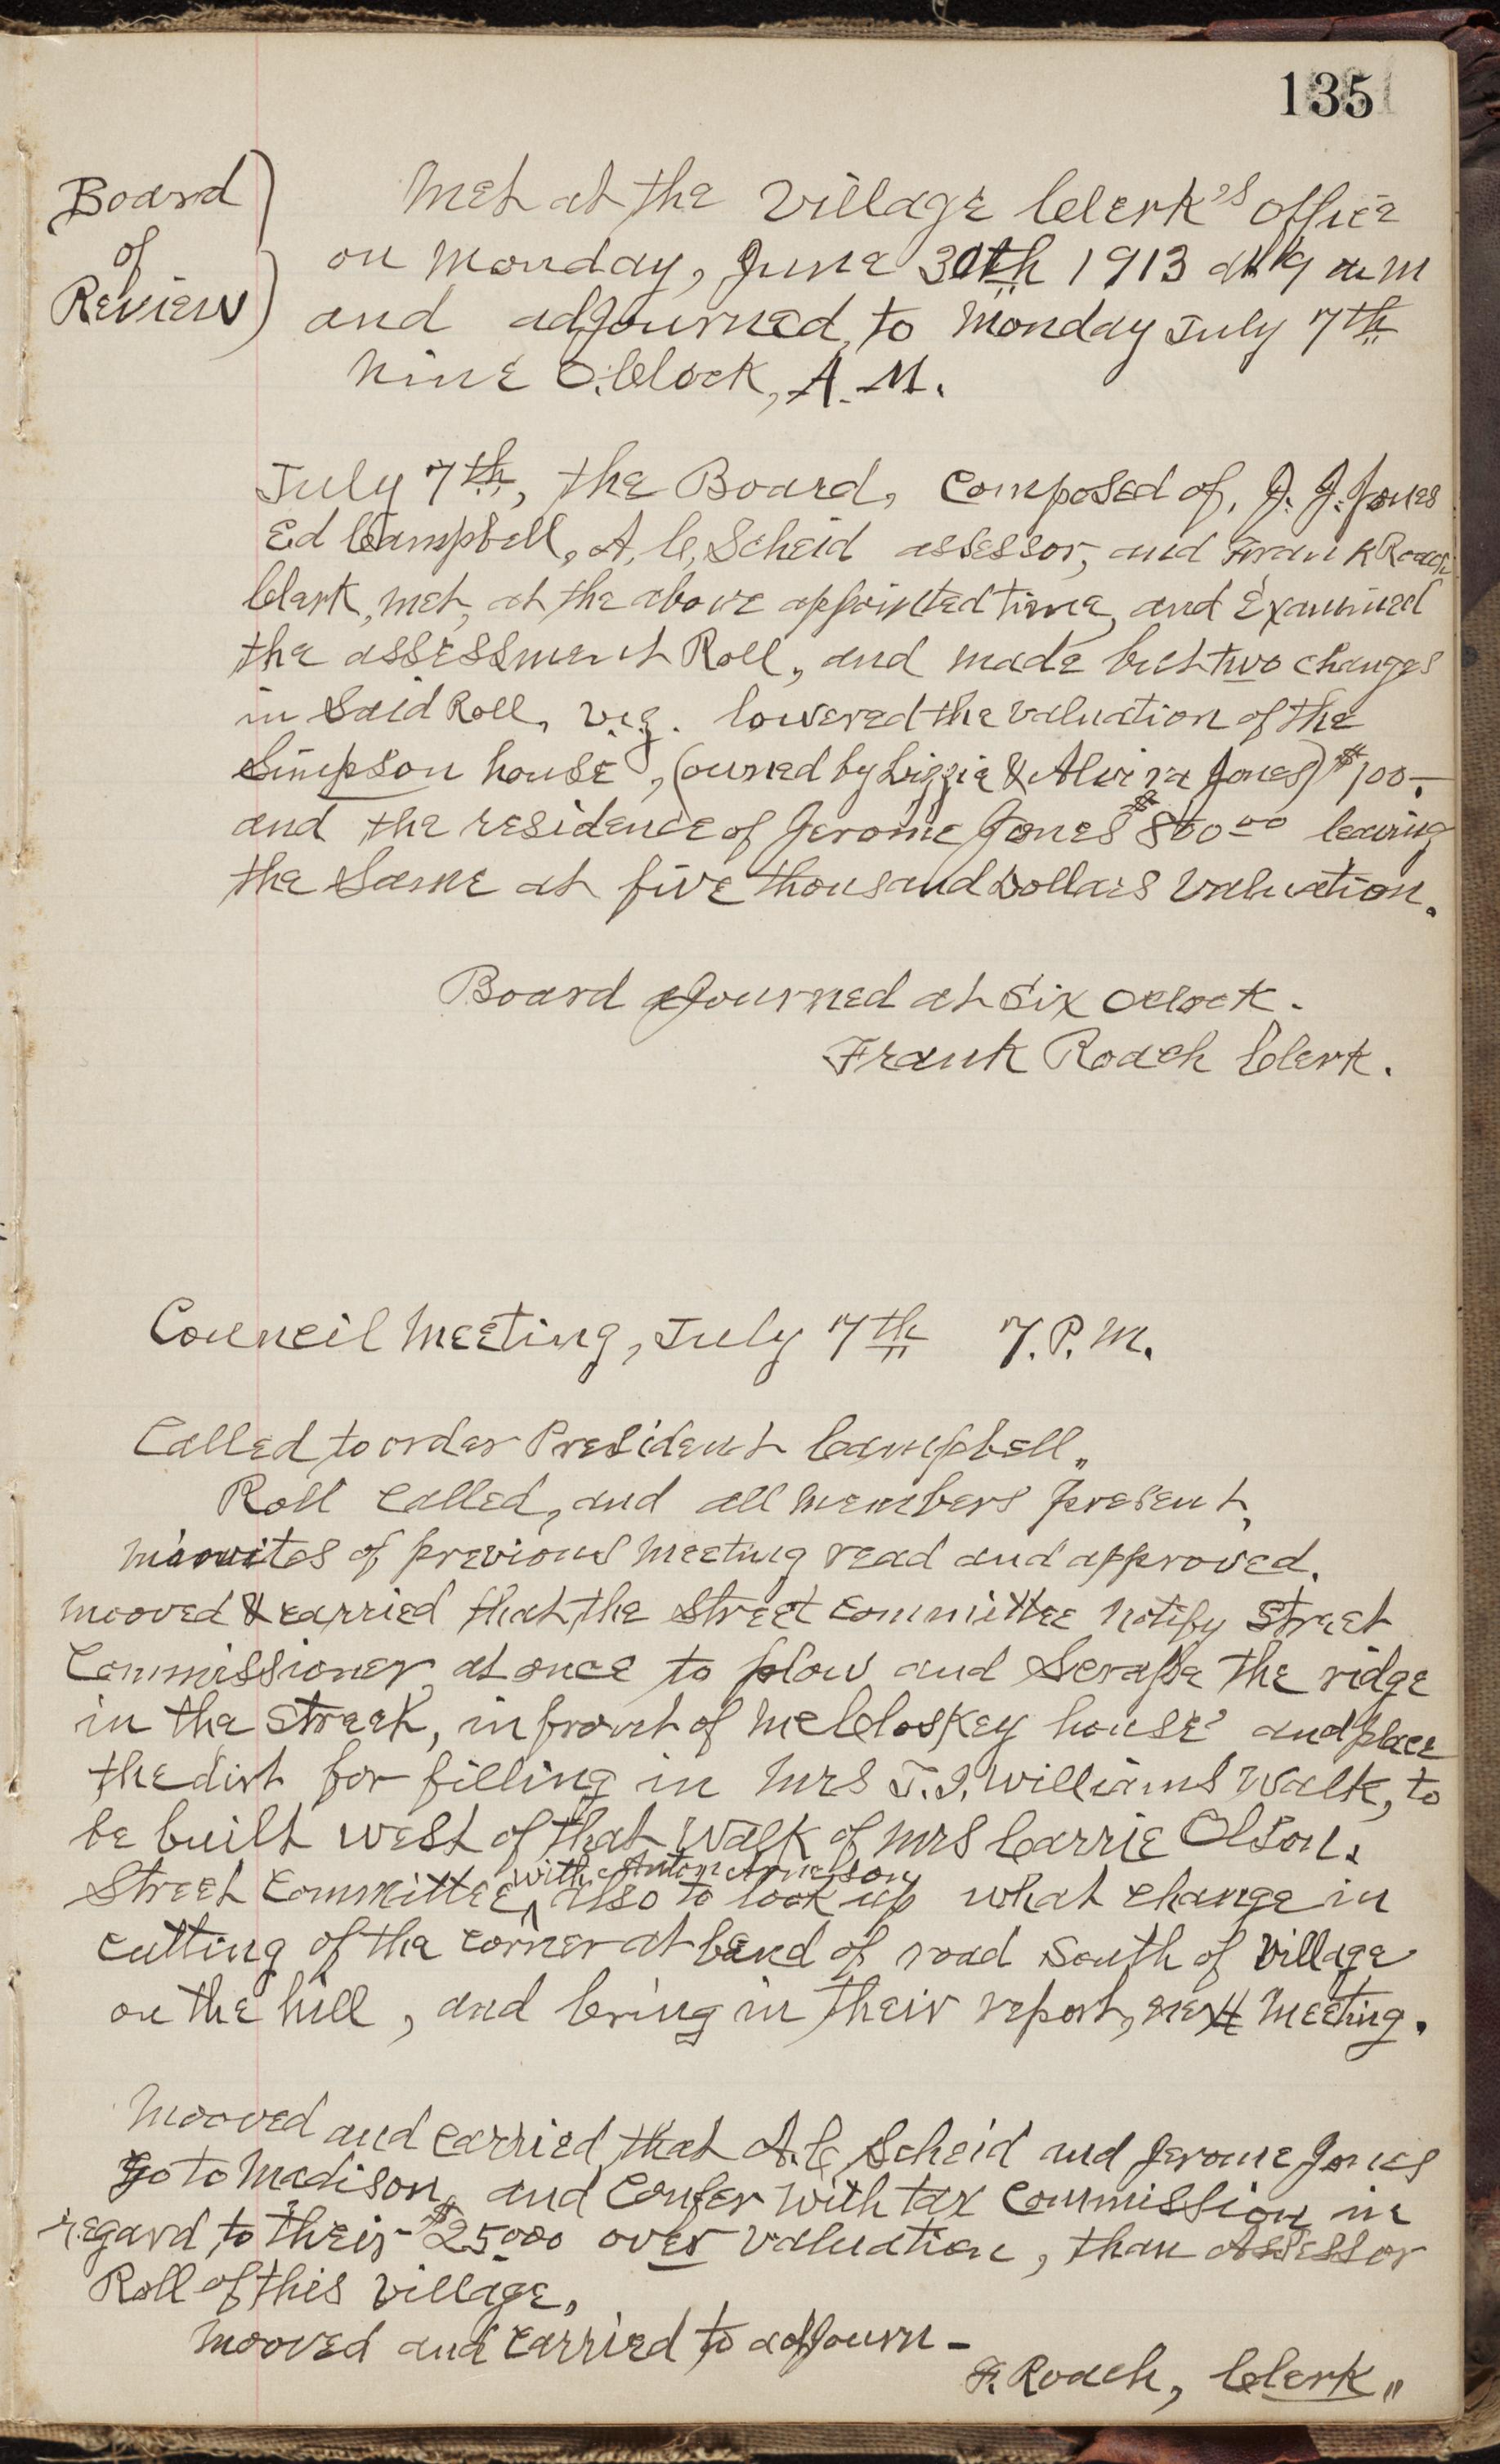 135
Board
of
Review
Met at the Village Clerk's office
on Monday, June 30th 1913 at 9 a m
and adjourned, to Monday July 7th
Nine O.Clock, A. M.
July 7th, the Board, composed of, J. J. Jones
Ed Campbell, A. C. Scheid assessor, and Frank Roach
Clerk, met, at the above appointed time, and Examined
the assessment Roll, and made but two changes
in Said Roll, viz. lowered the valuation of the
Simpson house, (owned by Lizzie & Alvira Jones) $100.—
and the residence of Jerome Jones $800 00 leaving
the Same at five thousand Dollars Valuation.
Board ajourned at Six Oclock.
Frank Roach Clerk.
Council Meeting, July 7th 7. P. M.
Called to order President Campbell.
Roll called, and all members present,
minuites of previous meeting read and approved.
mooved & carried that the Street Committee notify Street
Commissioner, at once to plow and Scrape the ridge
in the Street, in front of McCloskey house and place
the dirt for filling in Mrs T. J. Williams Walk, to
be built west of that walk of Mrs Carrie Olson.
with Anton Arneson
Street Committee, also to look up what change in
cutting of the corner at bend of road South of Village
on the hill, and bring in their report, next Meeting.
Mooved and carried, that A. C. Scheid and Jerome Jones
go to Madison, and Confer with tax Commission in
regard to their $25000 over valuation, than Assessor
Roll of this village,
Mooved and carried to adjourn -
F. Roach, Clerk"